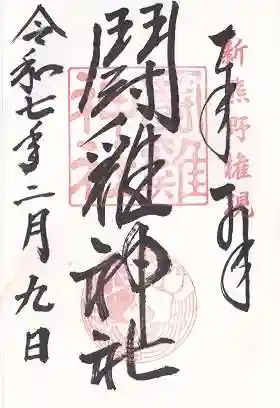 新熊野権現
奉拝
闘雞神社
令和七年二月九日